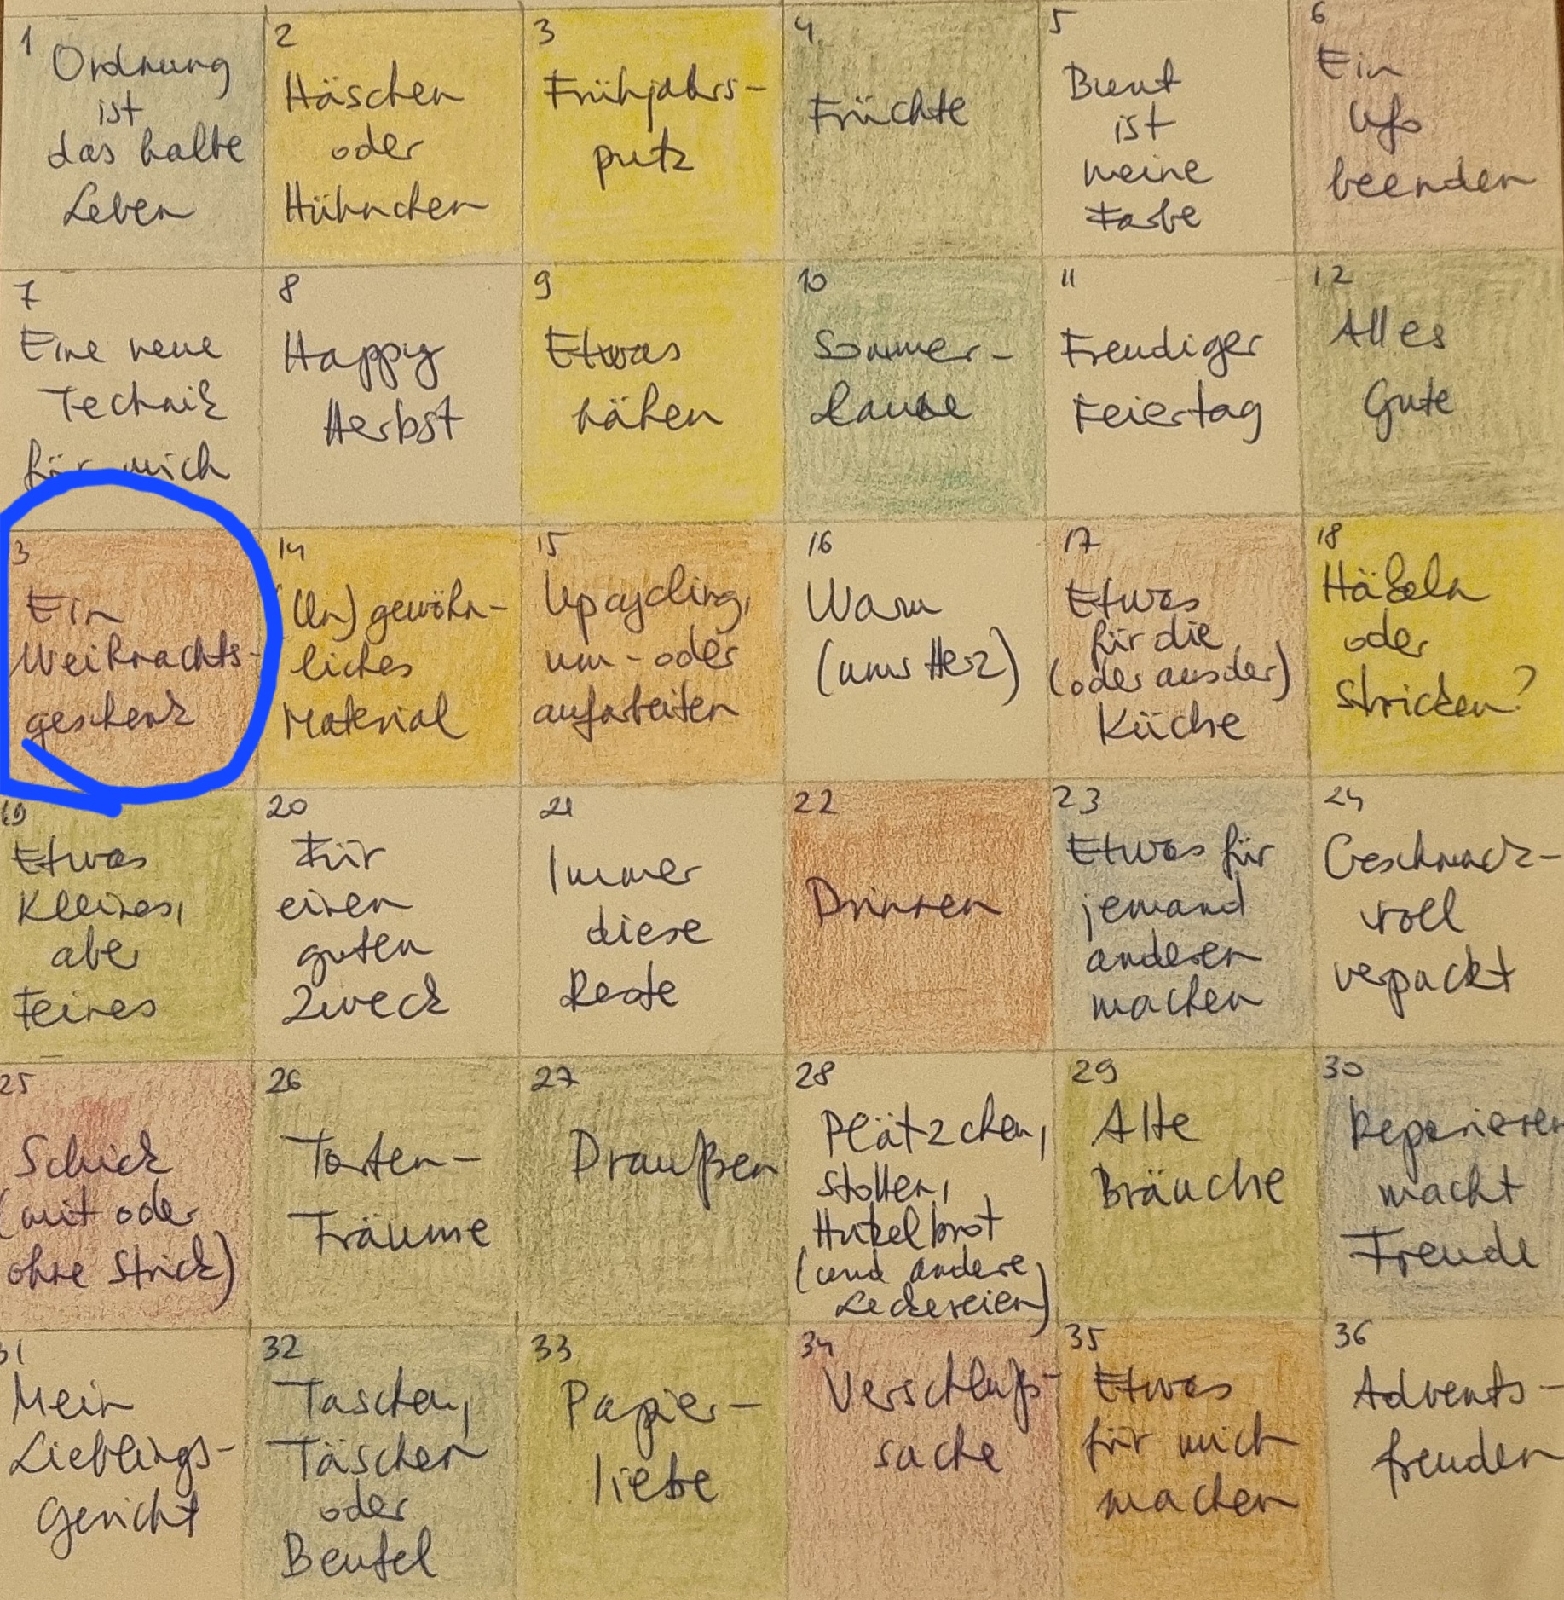 1
Ordnung
ist
das halbe
Leben
2
Häschen
oder
Hühnchen
3
Frühjahrs-
putz
4
Früchte
5
Bunt
ist
meine
Farbe
6
Ein
Ufo
beenden
7
Eine neue
Technik
für mich
8
Happy
Herbst
9
Etwas
nähen
10
Sommer-
laune
11
Freudiger
Feiertag
12
Alles
Gute
3
Ein
Weihnachts-
geschenk
14
(Un)gewöhn-
liches
Material
15
Upcycling,
um- oder
aufarbeiten
16
Warm
(ums Herz)
17
Etwas
für die
(oder aus der)
Küche
18
Häkeln
oder
Stricken?
19
Etwas
Kleines,
aber
Feines
20
Für
einen
guten
Zweck
21
Immer
diese
Reste
22
Drinnen
23
Etwas für
jemand
anderen
machen
24
Geschmack-
voll
verpackt
25
Schick
(mit oder
ohne Strick)
26
Torten-
Träume
27
Draußen
28
Plätzchen,
Stollen,
Hutzelbrot
(und andere
Leckereien)
29
Alte
Bräuche
30
Reparieren
macht
Freude
31
Mein
Lieblings-
Gericht
32
Taschen,
Täschen
oder
Beutel
33
Papier-
liebe
34
Verschluß-
sache
35
Etwas
für mich
machen
36
Advents-
freuden